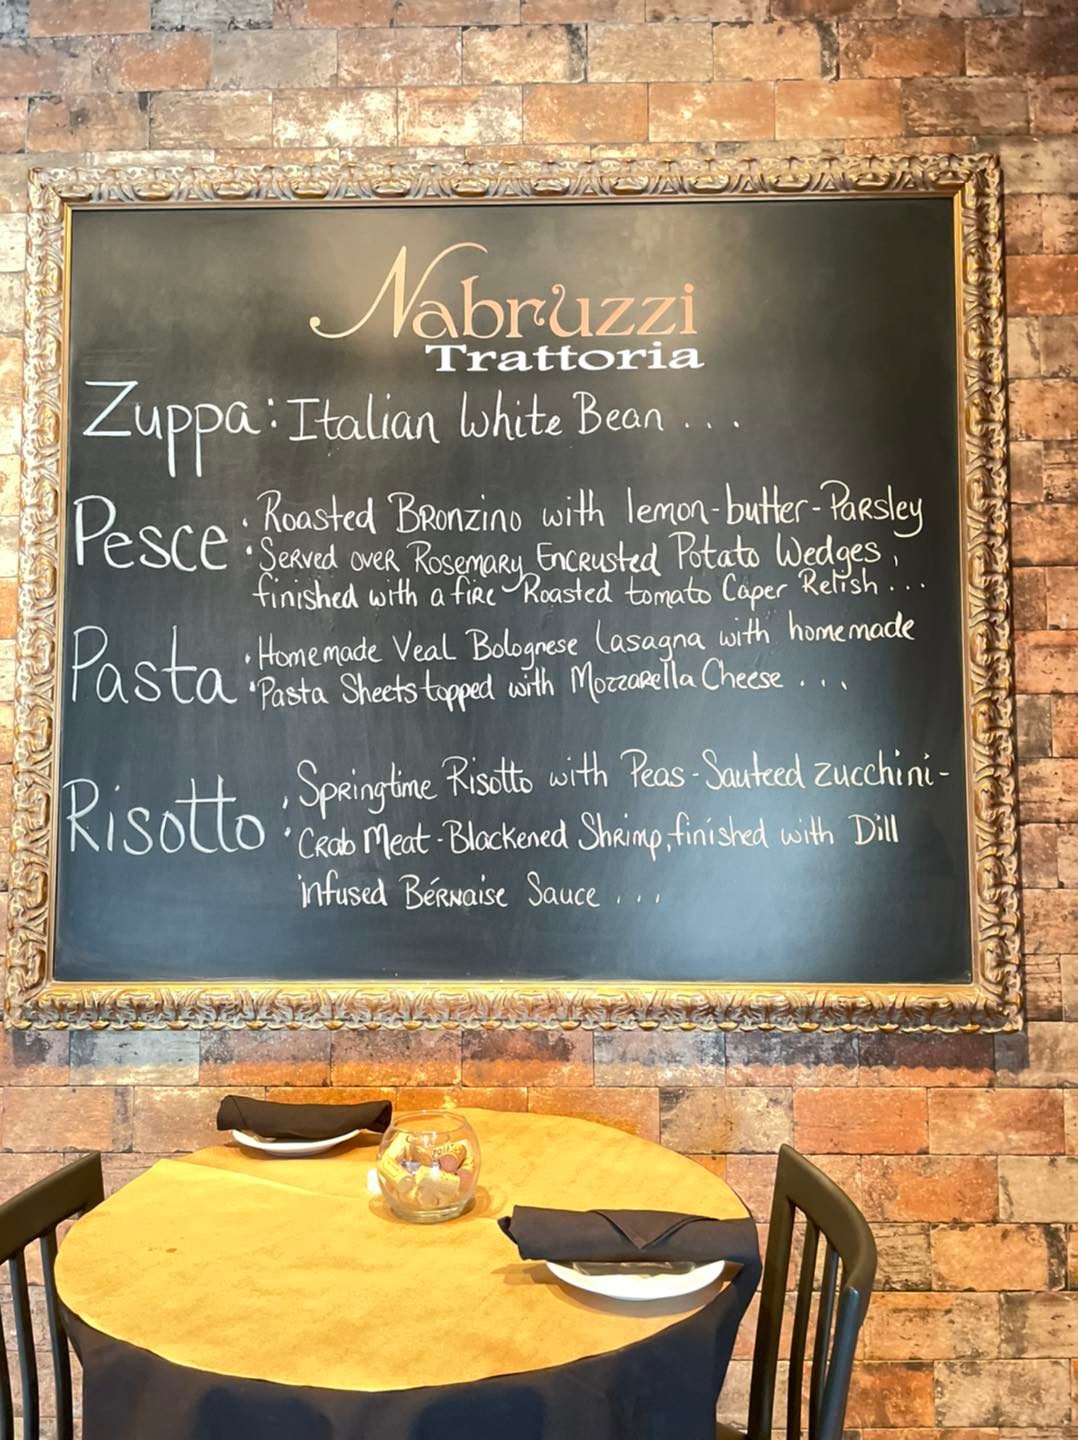 Nabruzzi
Trattoria
Zuppa: Italian White Bean ...
Pesce : Roasted Bronzino with lemon-butter-Parsley
Served over Rosemary Encrusted Potato Wedges,
finished with a fire Roasted tomato Caper Relish ...
Pasta : Homemade Veal Bolognese Lasagna with homemade
Pasta Sheets topped with Mozzarella Cheese ...
Risotto : Springtime Risotto with Peas-Sauteed zucchini-
Crab Meat-Blackened Shrimp, finished with Dill
infused Bérnaise Sauce ...